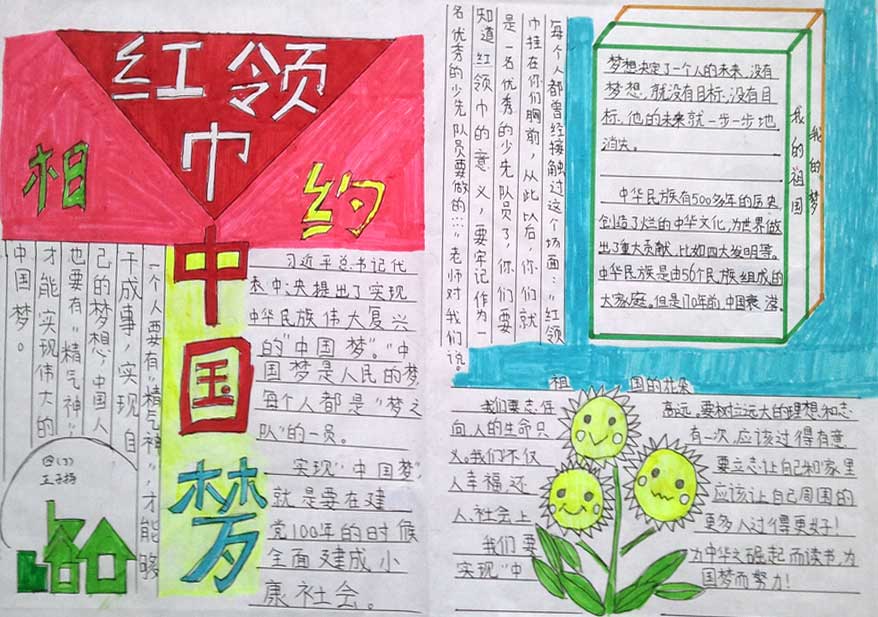 红领
巾
相
约
中国梦
一个人要有“精气神”,才能够
干成事,实现自
己的梦想,中国人
也要有“精气神”,
才能实现伟大的
中国梦。
习近平总书记代
表中央提出了实现
中华民族伟大复兴
的“中国梦”。“中
国梦是人民的梦,
每个人都是“梦之
队”的一员。
实现“中国梦”
就是要在建
党100年的时候
全面建成小
康社会。
每个人都曾经接触过这个场面:“红领
巾挂在你们胸前,从此以后,你们就
是一名优秀的少先队员了,你们要
知道红领巾的意义,要牢记作为一
名优秀的少先队员要做的……”老师对我们说。
梦想决定了一个人的未来,没有
梦想,就没有目标,没有目
标,他的未来就一步一步地
消失。
中华民族有5000多年的历史,
创造了烂的中华文化,为世界做
出了重大贡献,比如四大发明等。
中华民族是由56个民族组成的
大家庭。但是170年前,中国衰落。
我的祖国
我的梦
祖国的花朵
我们要志存高远。要树立远大的理想和志
向,人的生命只有一次,应该过得有意
义。我们不仅要立志让自己和家里
人幸福,还应该让自己周围的
人、社会上更多人过得更好!
我们要为中华之崛起而读书,为
实现“中国梦而努力!